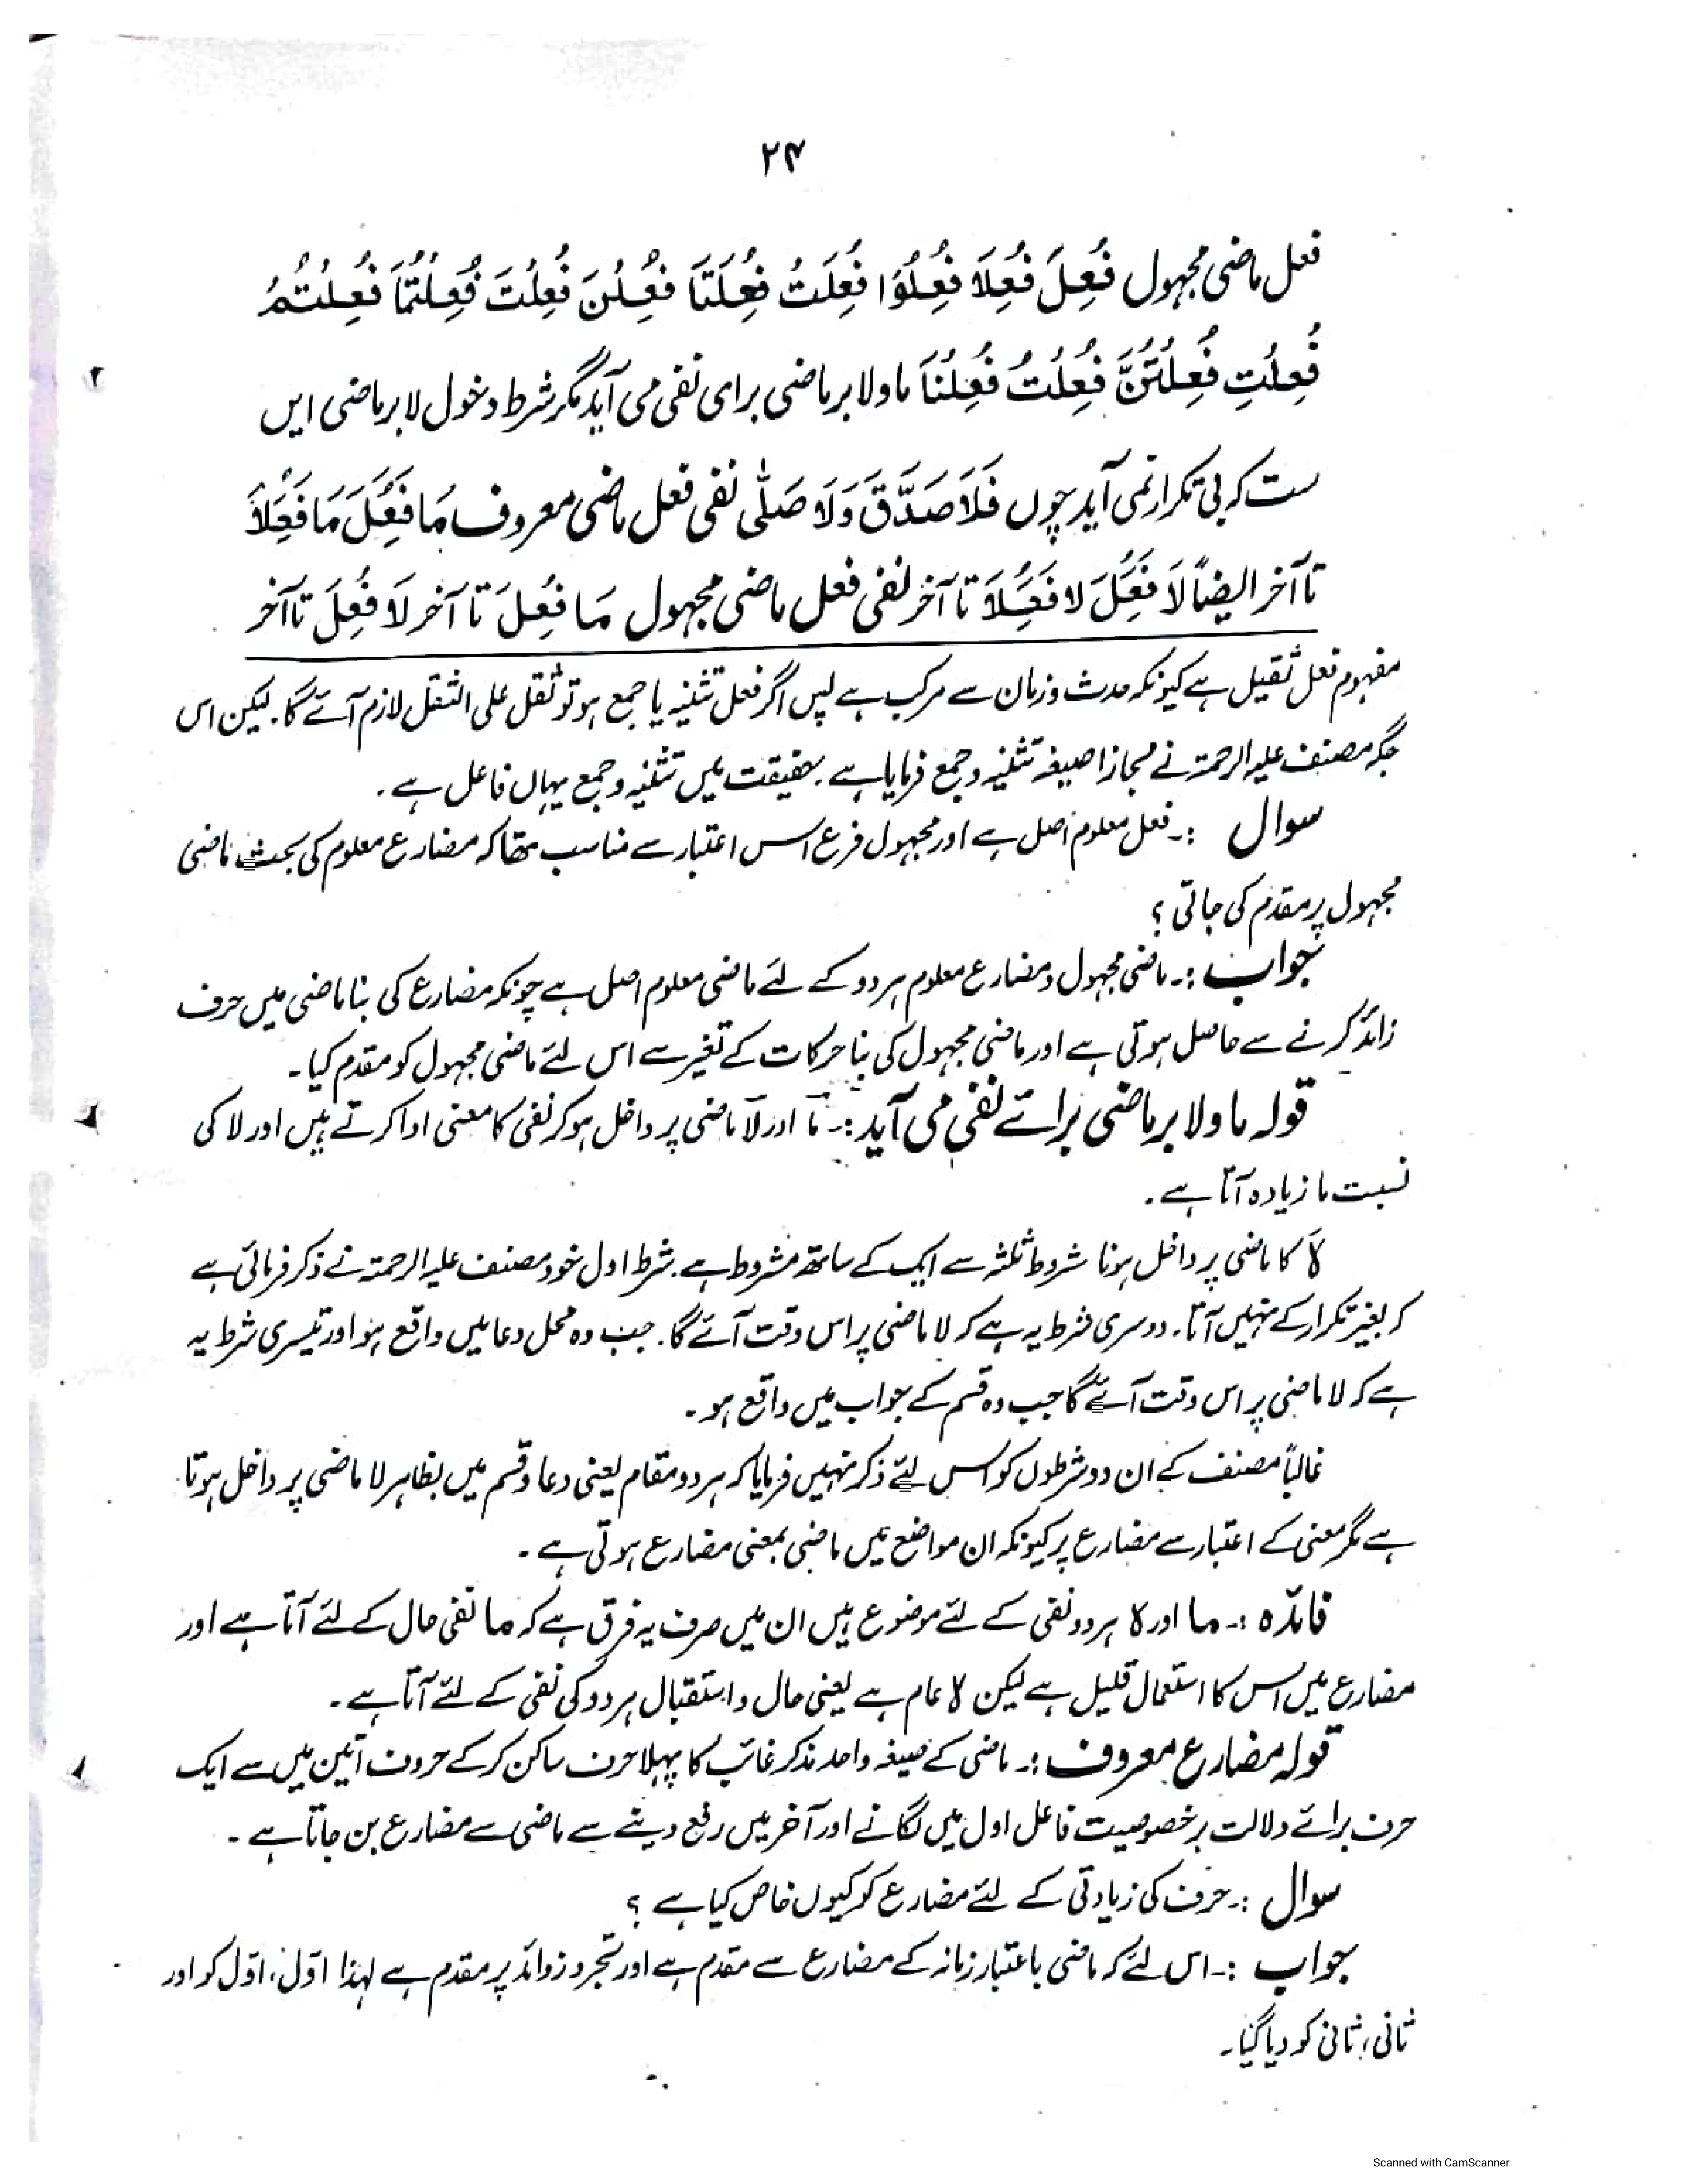 ۲۴
فعل ماضی مجہول فُعِلَ فُعِلَا فُعِلُوْا فُعِلَتْ فُعِلَتَا فُعِلْنَ فُعِلْتَ فُعِلْتُمَا فُعِلْتُمْ
فُعِلْتِ فُعِلْتُنَّ فُعِلْتُ فُعِلْنَا ما ولا بر ماضی برای نفی می آید مگر شرط دخول لا بر ماضی ایں
ست کہ بی تکرار نمی آید چوں فَلَا صَدَّقَ وَلَا صَلّٰی نفی فعل ماضی معروف مَا فَعَلَ مَا فَعَلَا
تا آخر ایضاً لَا فَعَلَ لا فَعَلَا تا آخر نفی فعل ماضی مجہول مَا فُعِلَ تا آخر لَا فُعِلَ تا آخر
مفہوم فعل ثقیل ہے کیونکہ حدث و زمان سے مرکب ہے پس اگر فعل تثنیہ یا جمع ہو تو ثقل علی الثقل لازم آئے گا۔ لیکن اس
جگہ مصنف علیہ الرحمۃ نے مجازا صیغہ تثنیہ و جمع فرمایا ہے۔ حقیقت میں تثنیہ و جمع یہاں فاعل ہے۔
سوال :۔ فعل معلوم اصل ہے اور مجہول فرع اس اعتبار سے مناسب تھا کہ مضارع معلوم کی بحث ماضی
مجہول پر مقدم کی جاتی ؟
جواب :۔ ماضی مجہول و مضارع معلوم ہر دو کے لئے ماضی معلوم اصل ہے چونکہ مضارع کی بنا ماضی میں حرف
زائد کرنے سے حاصل ہوتی ہے اور ماضی مجہول کی بنا حرکات کے تغیر سے اس لئے ماضی مجہول کو مقدم کیا۔
قولہ ما ولا بر ماضی برائے نفی می آید :۔ مَا اور لَا ماضی پر داخل ہو کر نفی کا معنی ادا کرتے ہیں اور لا کی
نسبت ما زیادہ آتا ہے۔
لَا کا ماضی پر داخل ہونا شروط ثلثہ سے ایک کے ساتھ مشروط ہے۔ شرط اول خود مصنف علیہ الرحمۃ نے ذکر فرمائی ہے
کہ بغیر تکرار کے نہیں آتا۔ دوسری شرط یہ ہے کہ لا ماضی پر اس وقت آئے گا۔ جب وہ محل دعا میں واقع ہو اور تیسری شرط یہ
ہے کہ لا ماضی پر اس وقت آئے گا جب وہ قسم کے جواب میں واقع ہو۔
غالباً مصنف کے ان دو شرطوں کو اس لئے ذکر نہیں فرمایا کہ ہر دو مقام یعنی دعا و قسم میں بظاہر لا ماضی پر داخل ہوتا
ہے مگر معنی کے اعتبار سے مضارع پر کیونکہ ان مواضع میں ماضی بمعنی مضارع ہوتی ہے۔
فائدہ :۔ ما اور لا ہر دو نفی کے لئے موضوع ہیں ان میں صرف یہ فرق ہے کہ ما نفی حال کے لئے آتا ہے اور
مضارع میں اس کا استعمال قلیل ہے لیکن لا عام ہے یعنی حال و استقبال ہر دو کی نفی کے لئے آتا ہے۔
قولہ مضارع معروف :۔ ماضی کے صیغہ واحد مذکر غائب کا پہلا حرف ساکن کر کے حروف اتین میں سے ایک
حرف برائے دلالت بر خصوصیت فاعل اول میں لگانے اور آخر میں رفع دینے سے ماضی سے مضارع بن جاتا ہے۔
سوال :۔ حرف کی زیادتی کے لئے مضارع کو کیوں خاص کیا ہے ؟
جواب :۔ اس لئے کہ ماضی باعتبار زمانہ کے مضارع سے مقدم ہے اور تجرد زوائد پر مقدم ہے لہذا اوّل، اوّل کو اور
ثانی، ثانی کو دیا گیا۔
Scanned with CamScanner